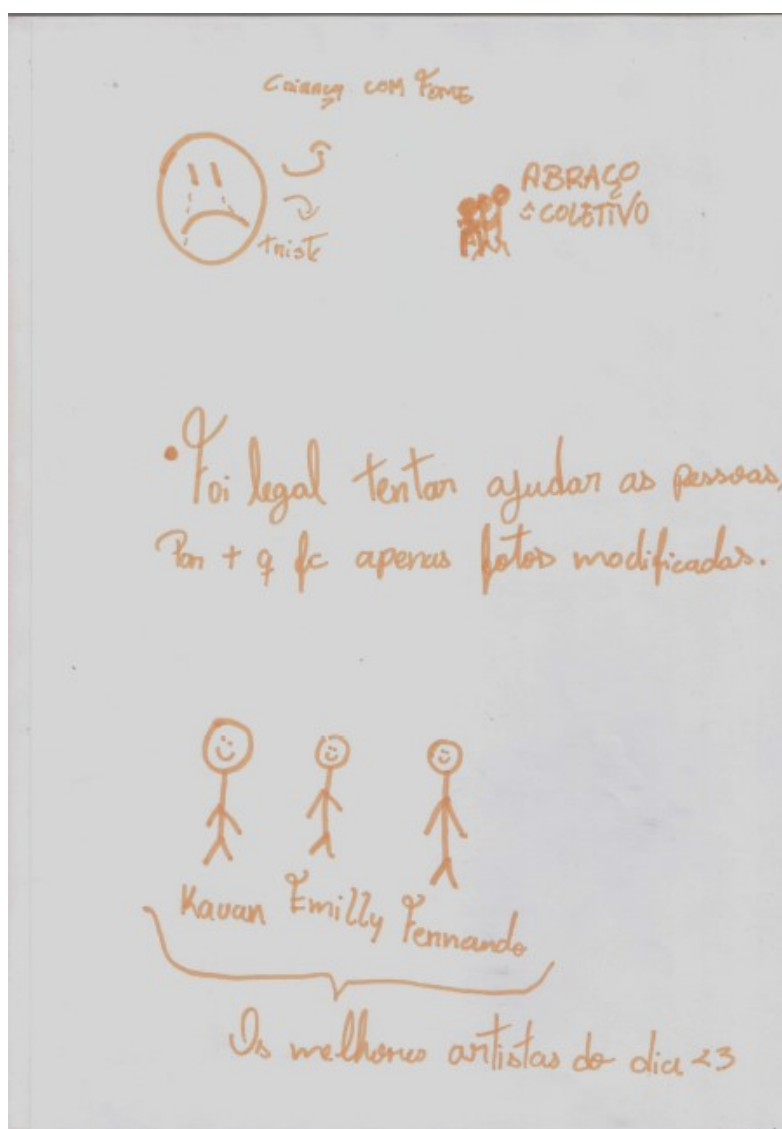 Criança com Fome
triste
ABRAÇO
COLETIVO
• Foi legal tentar ajudar as pessoas,
Por + q fc apenas fotos modificadas.
Kauan Emilly Fernando
Os melhores artistas do dia <3